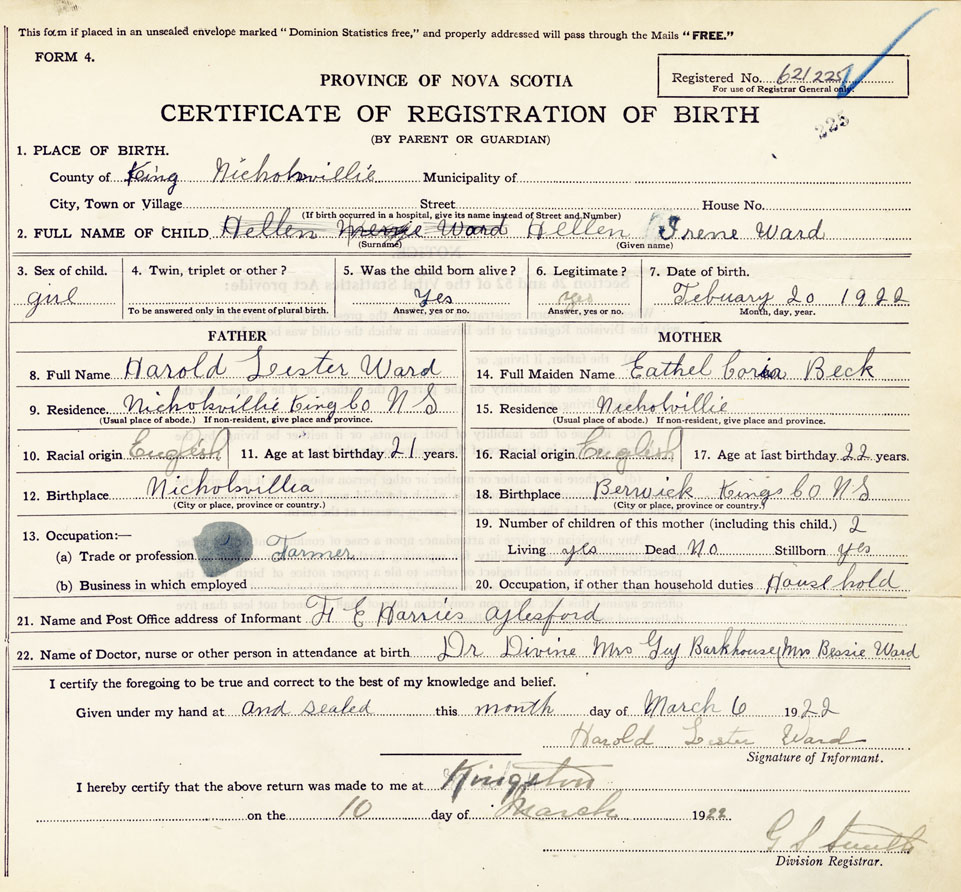 This form if placed in an unsealed envelope marked "Dominion Statistics free," and properly addressed will pass through the Mails "FREE."
FORM 4.
PROVINCE OF NOVA SCOTIA
Registered No. 621225
For use of Registrar General only.
225
CERTIFICATE OF REGISTRATION OF BIRTH
(BY PARENT OR GUARDIAN)
1. PLACE OF BIRTH.
County of King Nicholsvillie Municipality of
City, Town or Village Street House No.
(If birth occurred in a hospital, give its name instead of Street and Number)
2. FULL NAME OF CHILD Hellen Ward Hellen Irene Ward
(Surname) (Given name)
3. Sex of child. 4. Twin, triplet or other? 5. Was the child born alive? 6. Legitimate? 7. Date of birth.
girl Yes yes Febuary 20 1922
To be answered only in the event of plural birth. Answer, yes or no. Answer, yes or no. Month, day, year.
FATHER MOTHER
8. Full Name Harold Lester Ward 14. Full Maiden Name Eathel Beck
9. Residence Nicholsvillie King Co N S 15. Residence Nicholvillie
(Usual place of abode.) If non-resident, give place and province. (Usual place of abode.) If non-resident, give place and province.
10. Racial origin English 11. Age at last birthday 21 years. 16. Racial origin English 17. Age at last birthday 22 years.
12. Birthplace Nicholsvillia 18. Birthplace Berwick Kings Co N S
(City or place, province or country.) (City or place, province or country.)
13. Occupation:— 19. Number of children of this mother (including this child.) 2
(a) Trade or profession Farmer Living yes Dead No Stillborn yes
(b) Business in which employed 20. Occupation, if other than household duties House hold
21. Name and Post Office address of Informant F E Harries aylesford
22. Name of Doctor, nurse or other person in attendance at birth Dr Divine Mrs Guy Barkhouse (Mrs Bessie Ward
I certify the foregoing to be true and correct to the best of my knowledge and belief.
Given under my hand at and sealed this month day of March 6 1922
Harold Lester Ward
Signature of Informant.
I hereby certify that the above return was made to me at Kingston
on the 10 day of March 1922
G S Smith
Division Registrar.